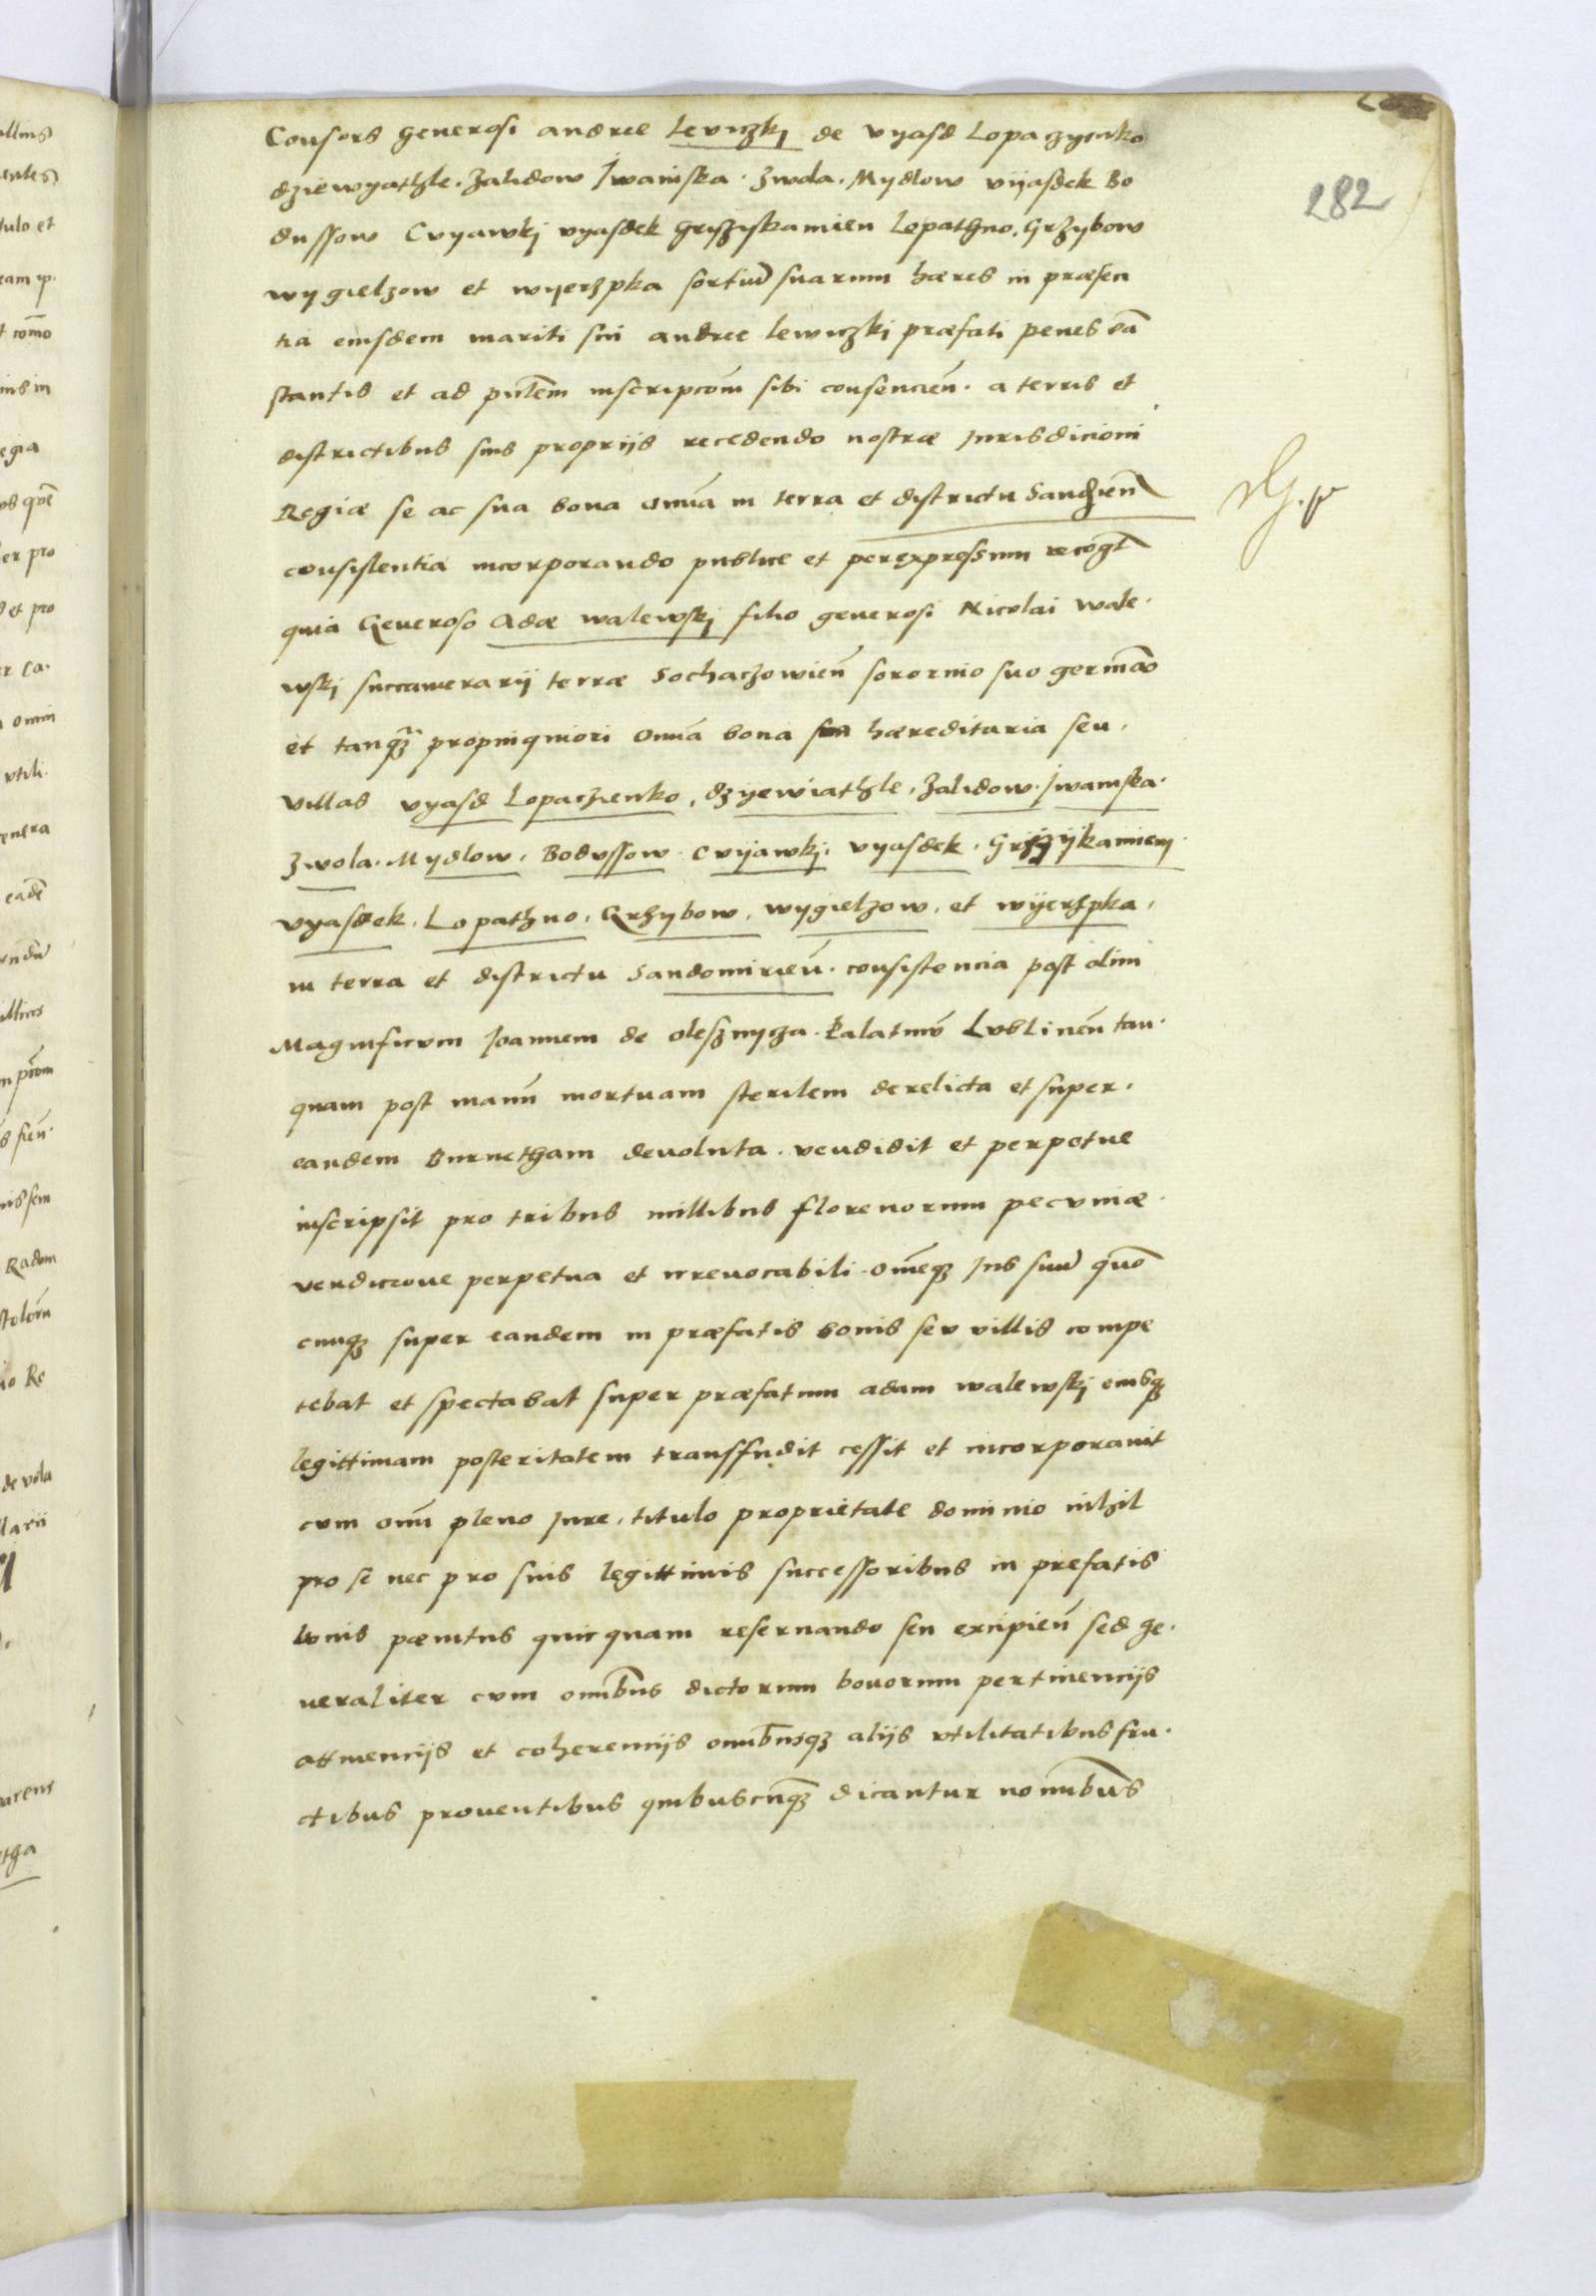 282
Consors generosi andree lewiczkj de vyasd Lopaczyenko
dziewyathle. zalidow Jwaniska. zwola. Mydlow vijasdek Bo
dussow Cvyawkj vyasdek grzyzijskamien lopathno. grzybow
wygielzow et wyerzpka sortiũ suarum hæres in præsen
tia eiusdem mariti sui andree lewiczkj præfati penes eã
stantis et ad pñtem inscripcõm sibi consencieñ. a terris et
districtibus suis proprijs recedendo nostræ jurisdicioni
Regiæ se ac sua bona om̃ia in terra et districtu Sandzieñ
consistentia incorporando publice et per expressum recogt̃
quia Generoso Adæ walewskj filio generosi Nicolai wale.
wskj succamerarij terræ Sochaczowieñ sorornio suo germão
et tanq̃ propinquiori om̃ia bona sua hæreditaria seu.
villas vyasd Lopaczienko, dzyewiathle, zalidow. jwaniska.
zwola. Mydlow, Bodussow. cvijawkj. vyasdek. Grzyzijkamieny.
vyasdek. Lopathno, Grzybow, wygielzow, et wyerzpka,
in terra et districtu Sandomirieñ. consistencia post olim
Magnificum Joannem de olesznycza. Palatinũ Lublineñ tan.
quam post manũ mortuam sterilem derelicta et super.
eandem Burnetham devoluta. vendidit et perpetue
inscripsit pro tribus millibus florenorum pecuniæ.
vendicione perpetua et irrevocabili. om̃eq3 Jus suũ quõ
cunq3 super eandem in præfatis bonis seu villis compe
tebat et spectabat super præfatum adam walewskj eiusq3
legittimam posteritatem transfudit cessit et incorporauit
cum om̃i pleno jure, titulo proprietate dominio nihil
pro se nec pro suis legittimis successoribus in prefatis
bonis pænitus quicquam reseruando seu excipieñ sed ge.
neraliter cum om̃ibus dictorum bonorum pertinencijs
attinencijs et coherencijs om̃ibusq3 alijs vtilitatibus fru.
ctibus prouentibus quibuscũq3 dicantur nominibus